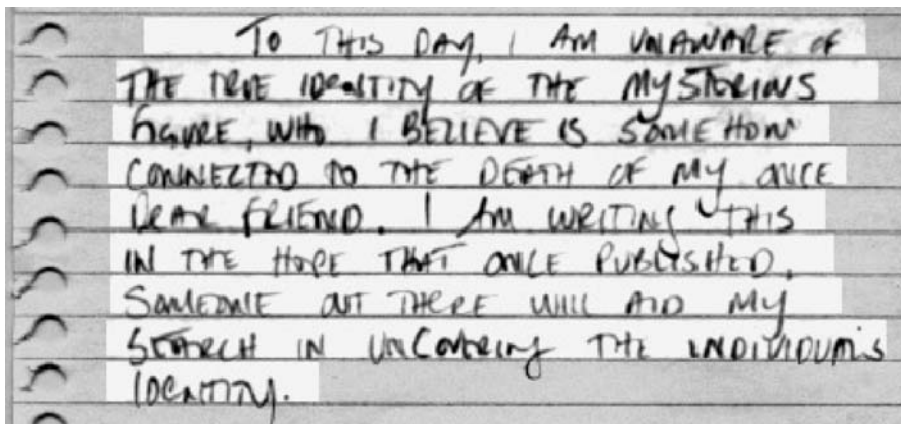 TO THIS DAY, I AM UNAWARE OF
THE TRUE IDENTITY OF THE MYSTERIOUS
FIGURE, WHO I BELIEVE IS SOMEHOW
CONNECTED TO THE DEATH OF MY ONCE
DEAR FRIEND. I AM WRITING THIS
IN THE HOPE THAT ONCE PUBLISHED,
SOMEONE OUT THERE WILL AID MY
SEARCH IN UNCOVERING THE INDIVIDUAL'S
IDENTITY.